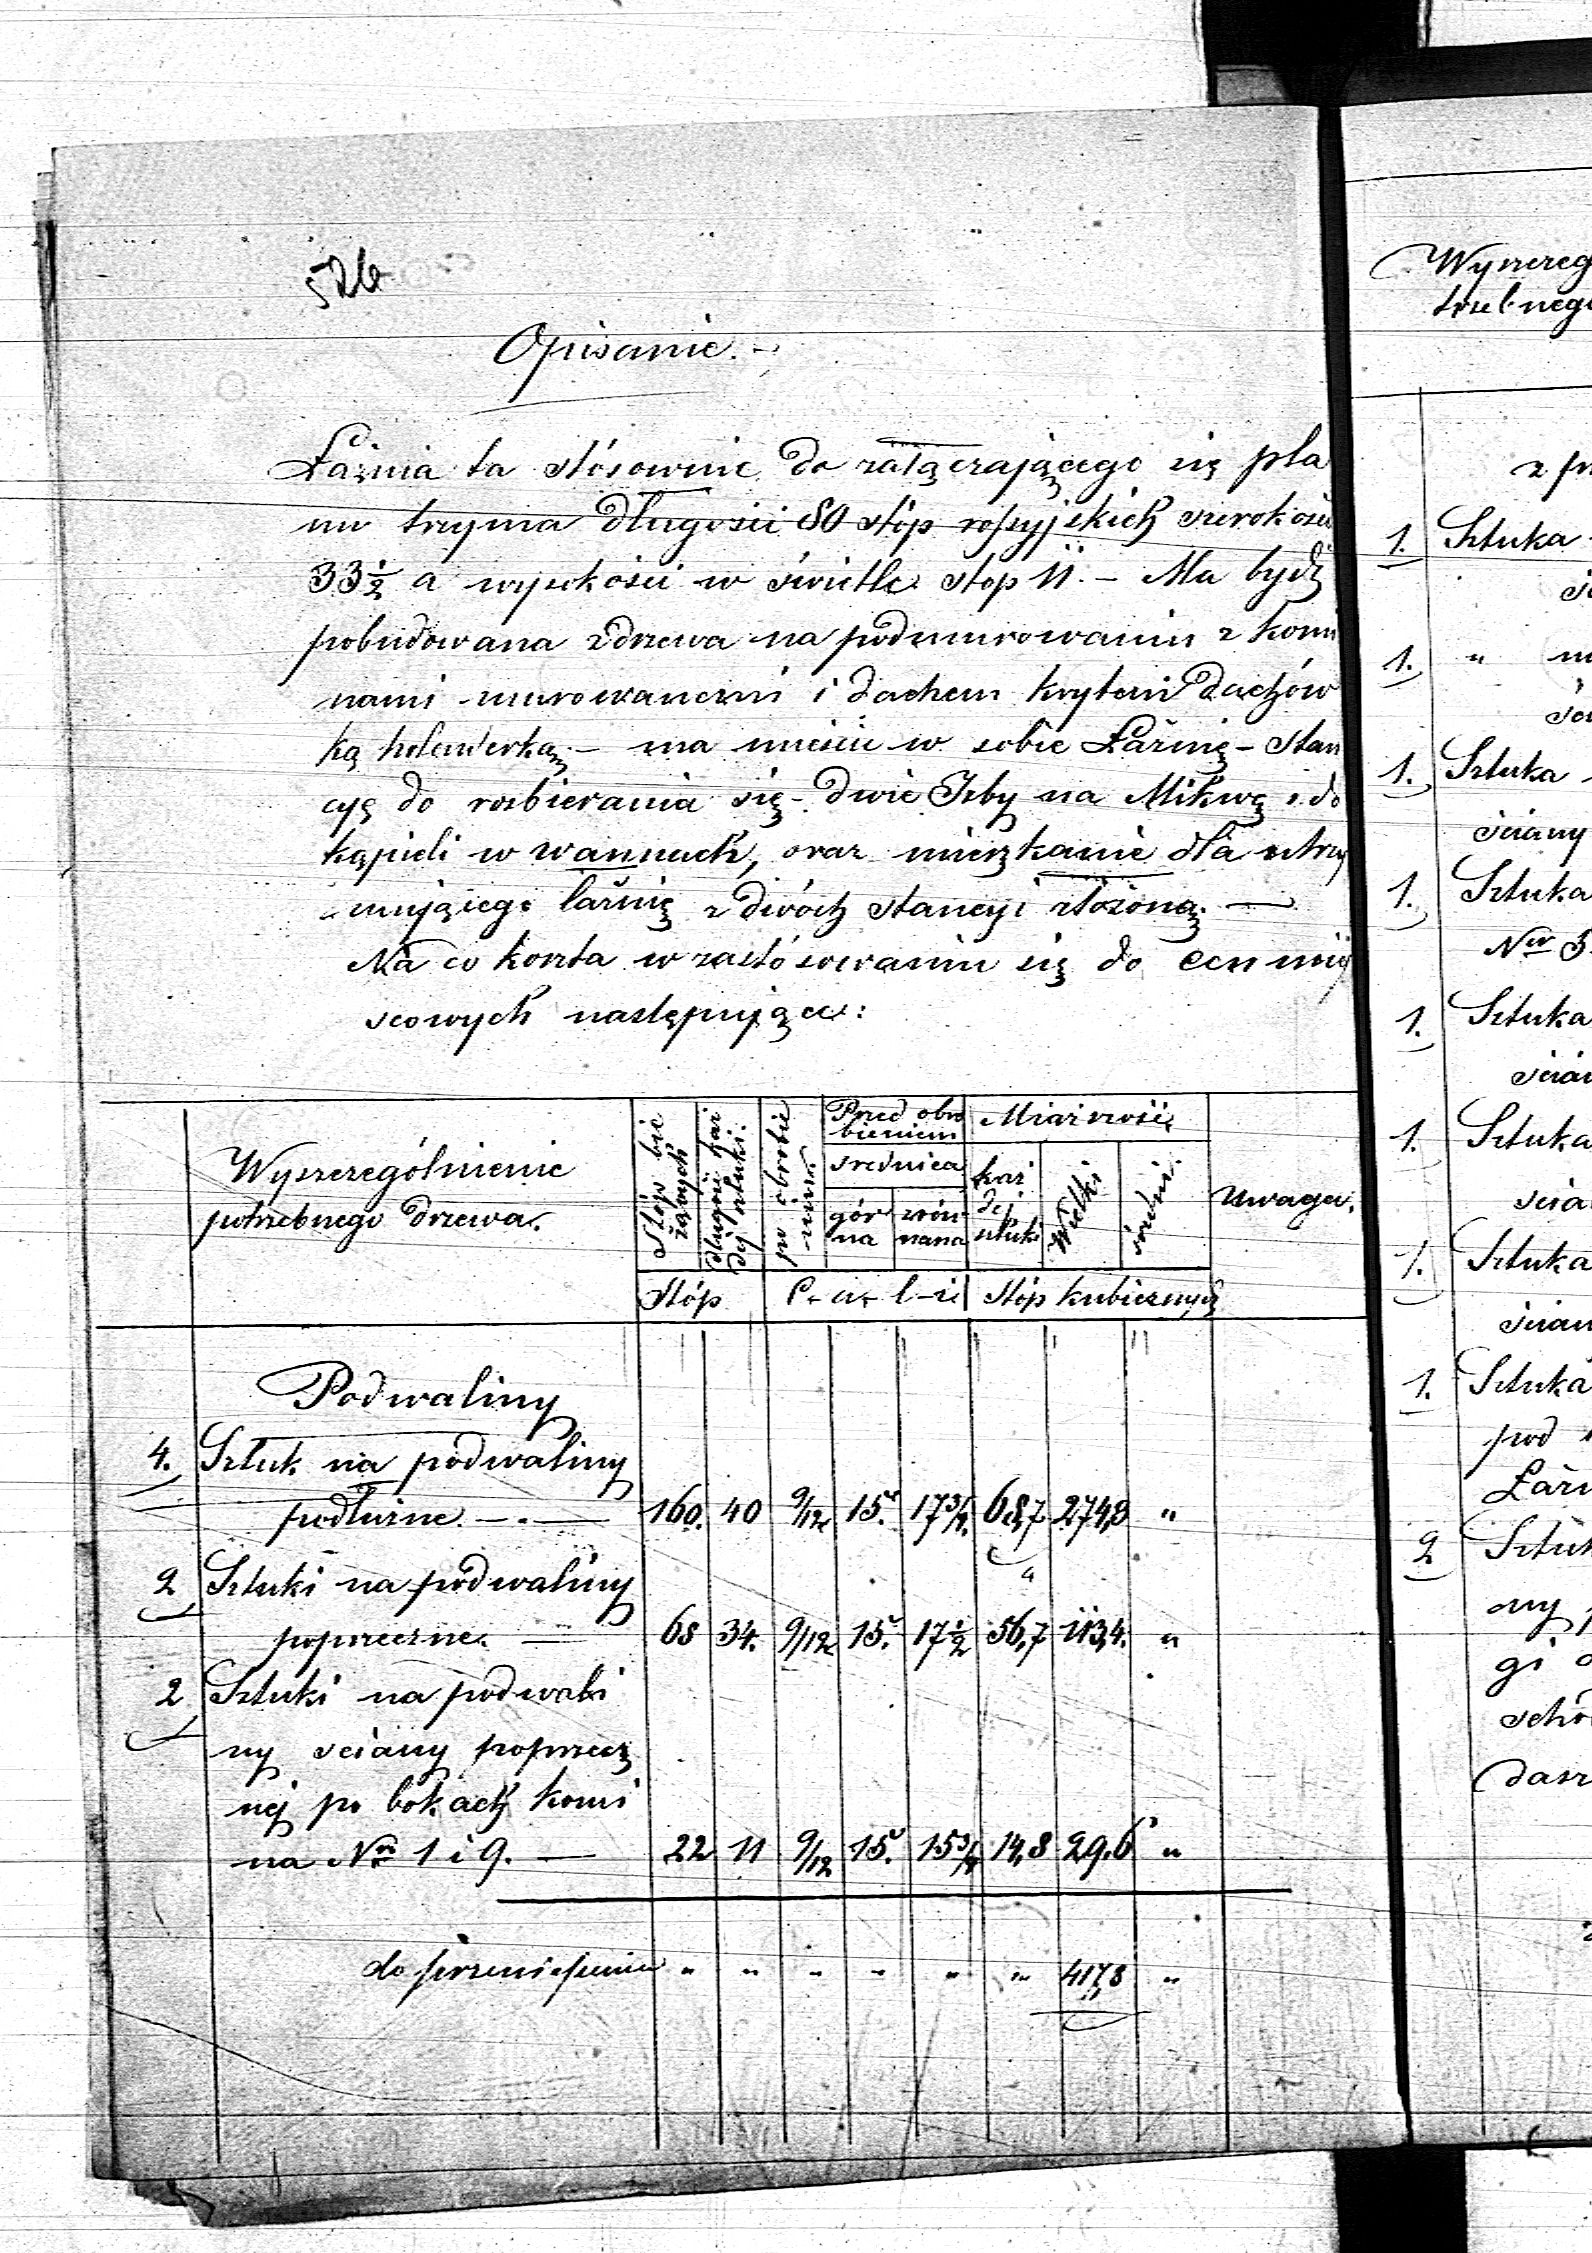 526
Opisanie. -
Łaźnia ta stósownie do załączającego się pla
nu trzyma długości 80 stóp rossyjskich szerokości
33 1/2 a wysokości w świetle stop 11. - Ma bydź
pobudowana z drzewa na podmurowaniu z komi
nami murowanemi i dachem krytem dachów
ką holenderką - ma mieście w sobie Łaźnię - stan
cyę do rozbierania się - dwie Izby na Mikwę i do
kąpieli w wannach, oraz mieszkanie dla utrzy
mującego łaźnię z dwóch stancyi złożoną. —
Na co koszta w zastósowaniu się do cen miej
scowych następujące:
Wyszczególnienie
potrzebnego drzewa.
Stóp bie
żących
długość każ
dej sztuki.
po obrobie
niu
Przed obro
bieniem
średnica
gór
na
zrów
nana
Miąższość
każ
dej
sztuki
Wielki
średni.
Uwaga.
Stóp
C - a - l - i
Stóp kubicznych
Podwaliny
4. Sztuk na podwaliny
podłużne. — . — 160. 40 9/12 15. 17 3/4. 68,7 274,8 "
2 Sztuki na podwaliny
poprzeczne. — 68 34. 9/12 15. 17 1/2 56,7 113,4. "
2 Sztuki na podwali
ny sciany poprzecz
nej po bokach komi
na Nr 1 i 9. — 22 11 9/12 15. 15 3/4 14,8 29,6 "
do przeniesienia " " " " " " 417,8 "
Wyszczeg
trzebnego
z p
1. Sztuka
1. "
1. Sztuka
sciany
1. Sztuka
Nr 3.
1. Sztuka
scian
1. Sztuka
scia
1. Sztuka
scian
1. Sztuka
pod
Łaźn
2 Sztuk
gi
scho
dasz